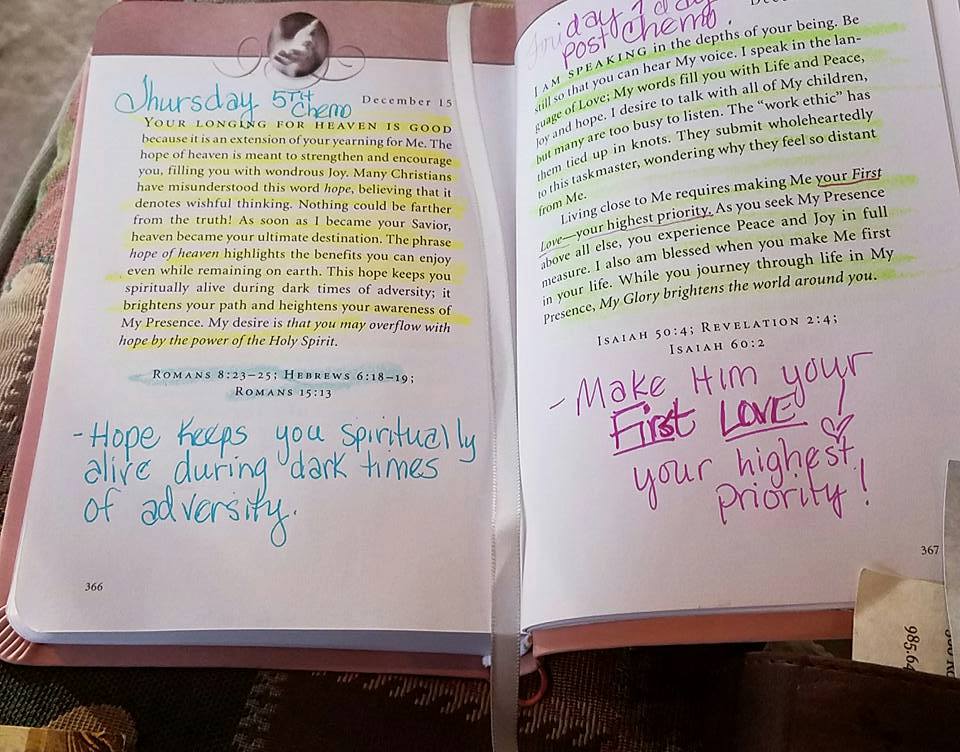 Thursday 5TH
chemo
December 15
YOUR LONGING FOR HEAVEN IS GOOD
because it is an extension of your yearning for Me. The
hope of heaven is meant to strengthen and encourage
you, filling you with wondrous Joy. Many Christians
have misunderstood this word hope, believing that it
denotes wishful thinking. Nothing could be farther
from the truth! As soon as I became your Savior,
heaven became your ultimate destination. The phrase
hope of heaven highlights the benefits you can enjoy
even while remaining on earth. This hope keeps you
spiritually alive during dark times of adversity; it
brightens your path and heightens your awareness of
My Presence. My desire is that you may overflow with
hope by the power of the Holy Spirit.
ROMANS 8:23–25; HEBREWS 6:18–19;
ROMANS 15:13
- Hope keeps you spiritually
alive during dark times
of adversity.
366
Friday 1 day
post chemo.
I AM SPEAKING in the depths of your being. Be
still so that you can hear My voice. I speak in the lan-
guage of Love; My words fill you with Life and Peace,
Joy and hope. I desire to talk with all of My children,
but many are too busy to listen. The “work ethic” has
them tied up in knots. They submit wholeheartedly
to this taskmaster, wondering why they feel so distant
from Me.
Living close to Me requires making Me your First
Love—your highest priority. As you seek My Presence
above all else, you experience Peace and Joy in full
measure. I also am blessed when you make Me first
in your life. While you journey through life in My
Presence, My Glory brightens the world around you.
ISAIAH 50:4; REVELATION 2:4;
ISAIAH 60:2
- Make Him your
First LOVE
your highest
priority!
367
985.64